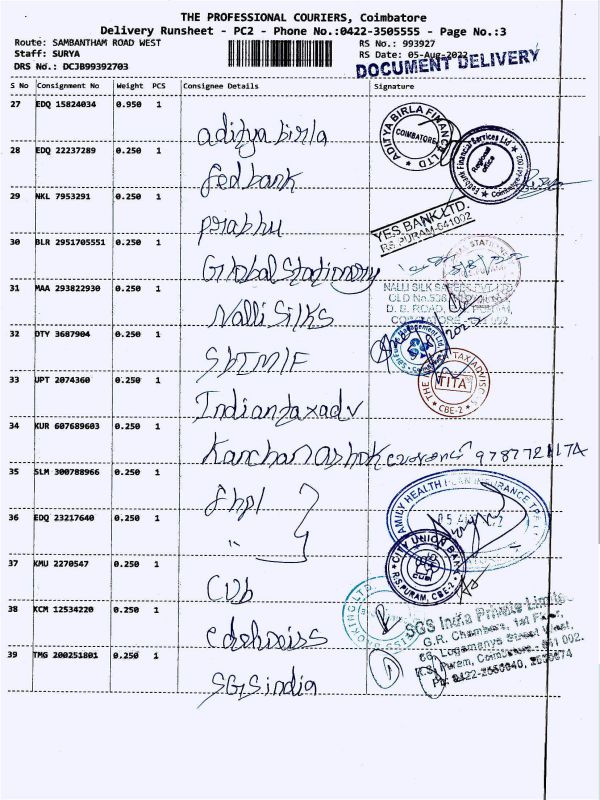 THE PROFESSIONAL COURIERS, Coimbatore
Delivery Runsheet - PC2 - Phone No.:0422-3505555 - Page No.:3
Route: SAMBANTHAM ROAD WEST
RS No.: 993927
Staff: SURYA
RS Date: 05-Aug-2022
DRS No.: DCJB99392703
DOCUMENT DELIVERY
S No Consignment No Weight PCS Consignee Details Signature
27 EDQ 15824034 0.950 1
aditya birla
ADITYA BIRLA FINANCE LTD
COIMBATORE
28 EDQ 22237289 0.250 1
fedbank
Fedbank Financial Services Ltd
Regional Office
Coimbatore-641 002.
29 NKL 7953291 0.250 1
prabhu
YES BANK LTD.
R.S.PURAM-641002
30 BLR 2951705551 0.250 1
Global Stationery
31 MAA 293822930 0.250 1
Nalli Silks
NALLI SILK SAREES PVT LTD
OLD No.536
D. B. ROAD,
32 DTY 3687904 0.250 1
SBIMF
33 UPT 2074360 0.250 1
Indiantaxadv
TITA
CBE-2
34 KUR 607689603 0.250 1
Kanchan ashok
35 SLM 300788966 0.250 1
fhpl
FAMILY HEALTH PLAN INSURANCE TPA
36 EDQ 23217640 0.250 1
"
37 KMU 2270547 0.250 1
CUb
CITY UNION BANK
CUB
R.S.PURAM, CBE-2
38 KCM 12534220 0.250 1
39 TMG 200251801 0.250 1
SGS india
SGS India Private Limited
G.R. Chambers, 1st Floor,
R.S. Puram, Coimbatore - 641 002.